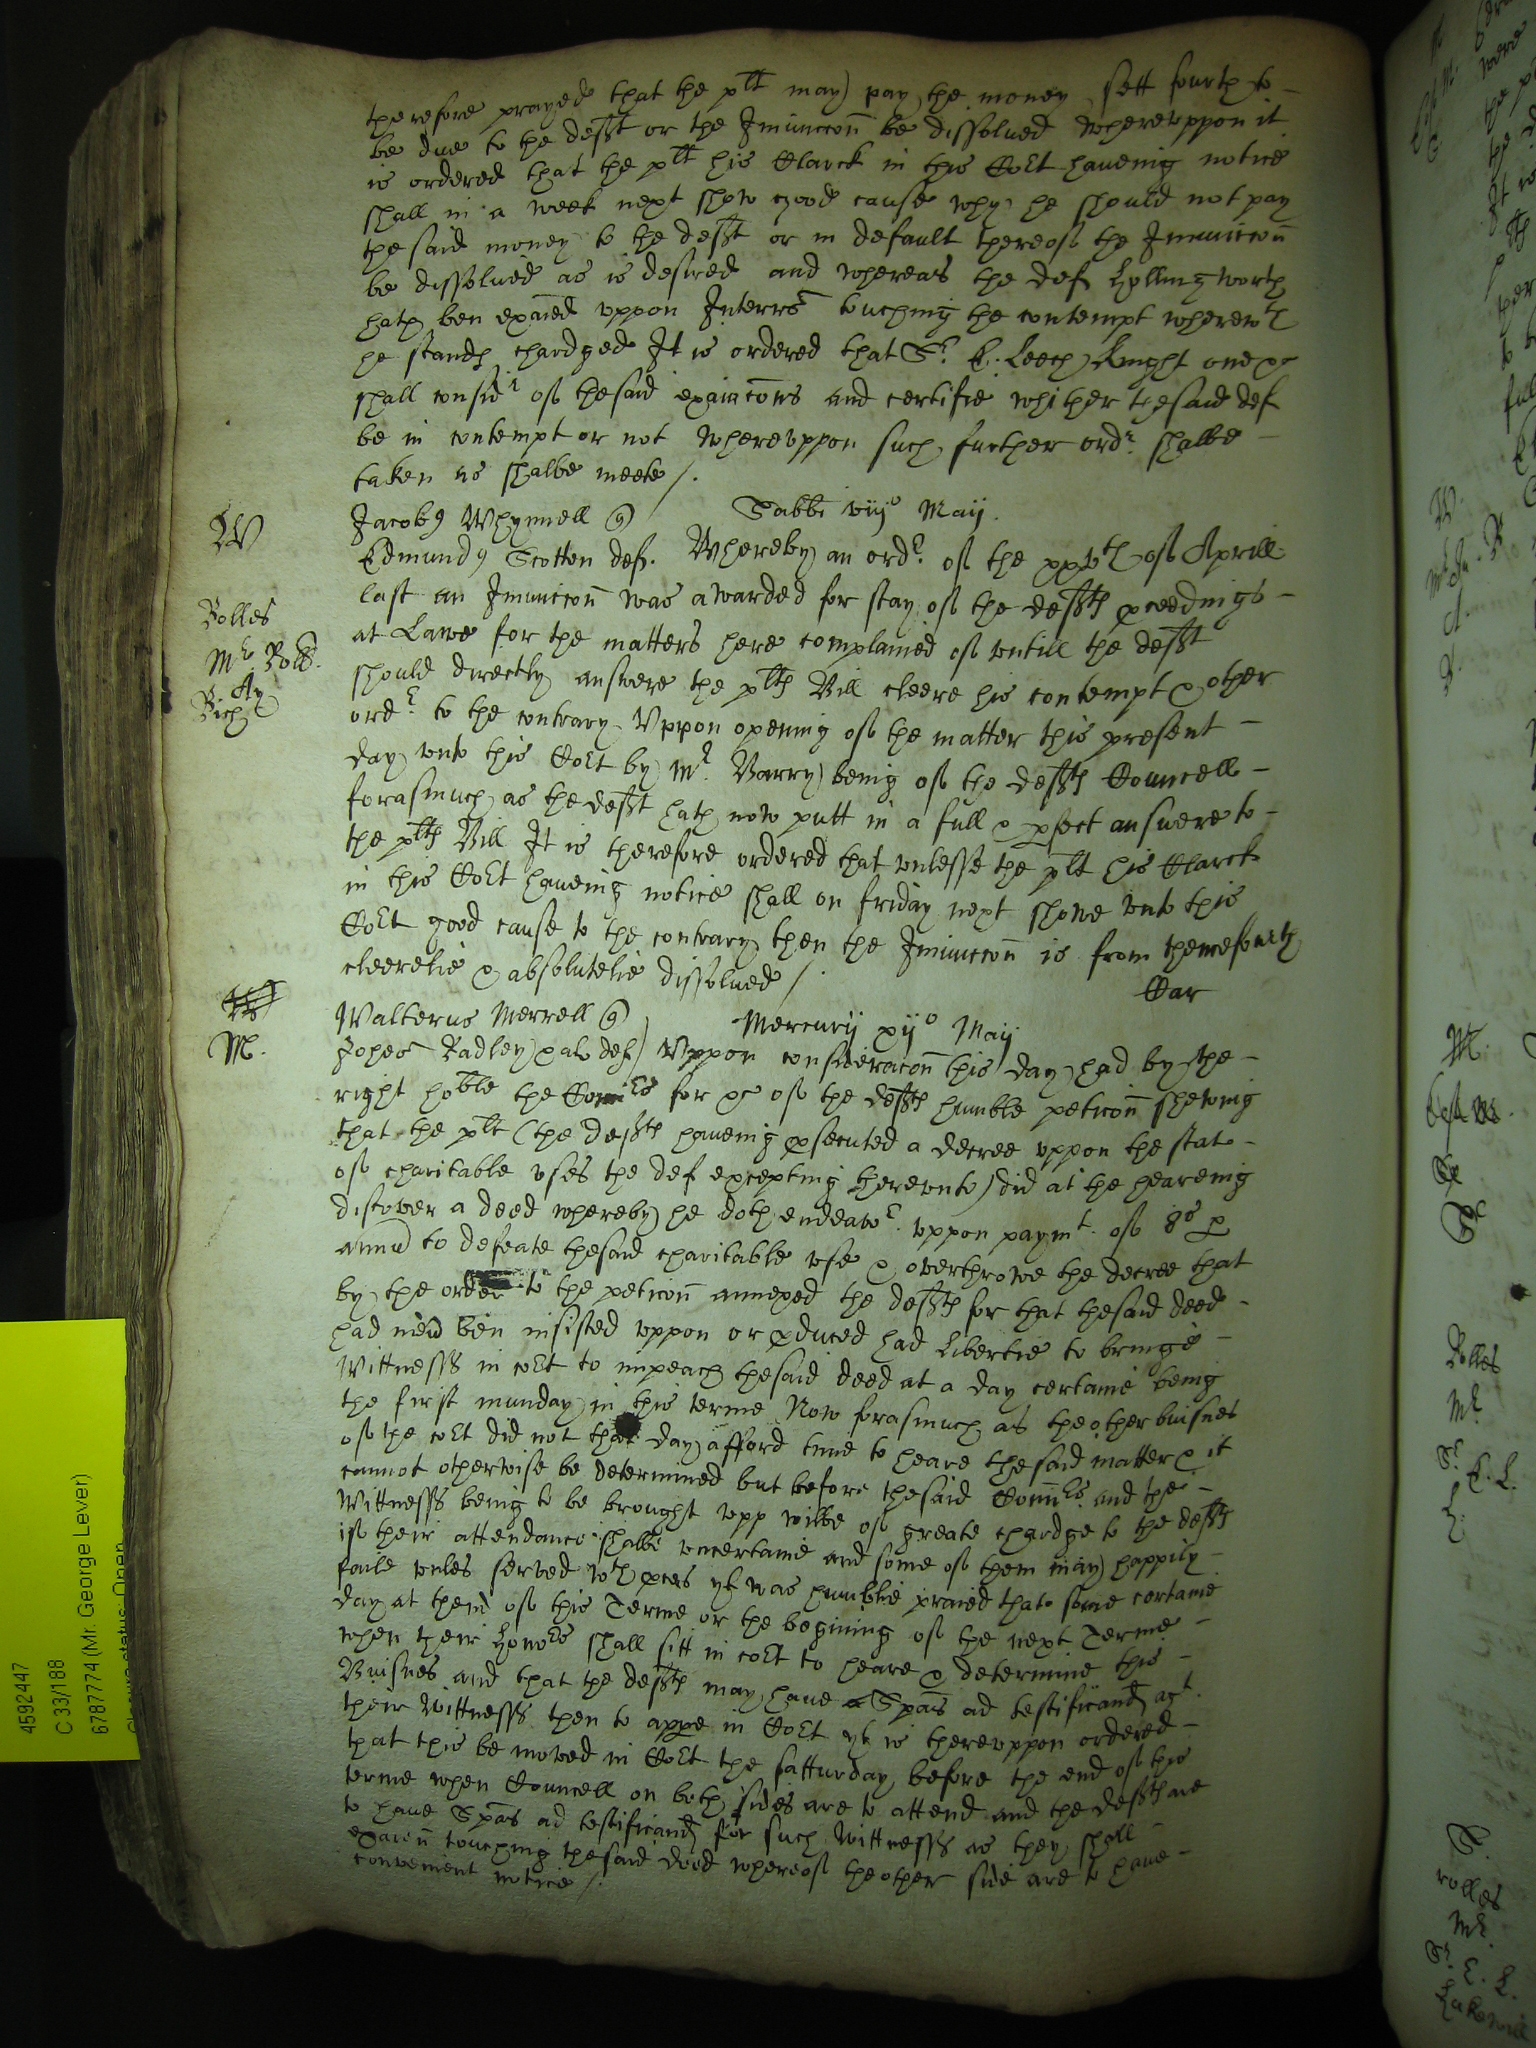 therefore prayed that the plt may pay the money sett fourth to
be due to the deft or the Iniunccon be dissolved wherevppon it
is ordered that the plt his Clarck in this Cort haveing notice
shall in a week next shew good cause why he should not pay
the said money to the deft or in default thereof the Iniunccon
be dissolued as is desired and whereas the def Hollingworth
hath ben exaied vppon Interrs touching the contempt wherewth
he standes chardged It is ordered that Sr E. Leech Knight one &c
shall considr of the said exaiacons and certifie whither the said def
be in contempt or not wherevppon such further ordr shalbe
taken as shalbe meete /.
W
Jacobus Whynnell Sabbi viijo Maij.
Edmundus Scotten def. Whereby an ordr of the xxvth of Aprill
last an Iniunccon was awarded for stay of the defts proceedings
at Lawe for the matters here complained of vntill the deft
should directly answere the plts Bill cleere his contempt & other
ordr to the contrary. Vppon opening of the matter this present
day vnto this Cort by Mr. Barry being of the defts Councell
forasmuch as the deft hath now putt in a full & pfect answere to
the plts Bill It is therefore ordered that vnlesse the plt his Clarck
in this Cort haveing notice shall on friday next shewe vnto this
Cort good cause to the contrary then the Iniunccon is from thencefourth
cleerelie & absolutelie dissolued /.
Rolles
Mr Rolls.
Rich
Car
M.
Walterus Merrell Mercurij xijo Maij
Johes Radley & al def Vppon consideracon this day had by the
right hoble the Comrs for &c of the defts humble peticon shewing
that the plt (the defts haveing psecuted a decree vppon the stat
of charitable vses the def excepting therevnto) did at the heareing
discover a deed whereby he doth endeavr vppon paymt of 8s p
annu to defeate the said charitable vse & overthrowe the decree that
by the order to the peticon annexed the defts for that the said deed
had nevr bein insisted vppon or pduced had libertie to bringe
Wittnesss in cort to impeach the said deed at a day certaine being
the first munday in this terme Now forasmuch as the other buisnes
of the cort did not that day afford time to heare the said matter & it
cannot otherwise be determined but before the said Comrs and the
Wittnesss being to be brought vpp wilbe of greate chardge to the defts
if their attendance shalbe vncertaine and some of them may happily
faile vnles served wth pces yt was humblie praied that some certaine
day at thend of this Terme or the begining of the next Terme
when their Honors shall sitt in cort to heare & determine this
Buisnes and that the defts may have Spas ad testificand agt
their Wittnesss then to appe in Cort yt is therevppon ordered
that this be moved in Cort the satturday before the end of this
terme when Councell on both sides are to attend and the defts are
to have Spas ad testificand for such Wittnesss as they shall
exaien touching the said deed whereof the other side are to have
convenient notice /.
4592447
C 33/188
6787774 (Mr. George Lever)
Closure status: Open
M.
Rolles
Mr.
Sr E. L.
S.
rolles
Mr.
Sr. E. L.